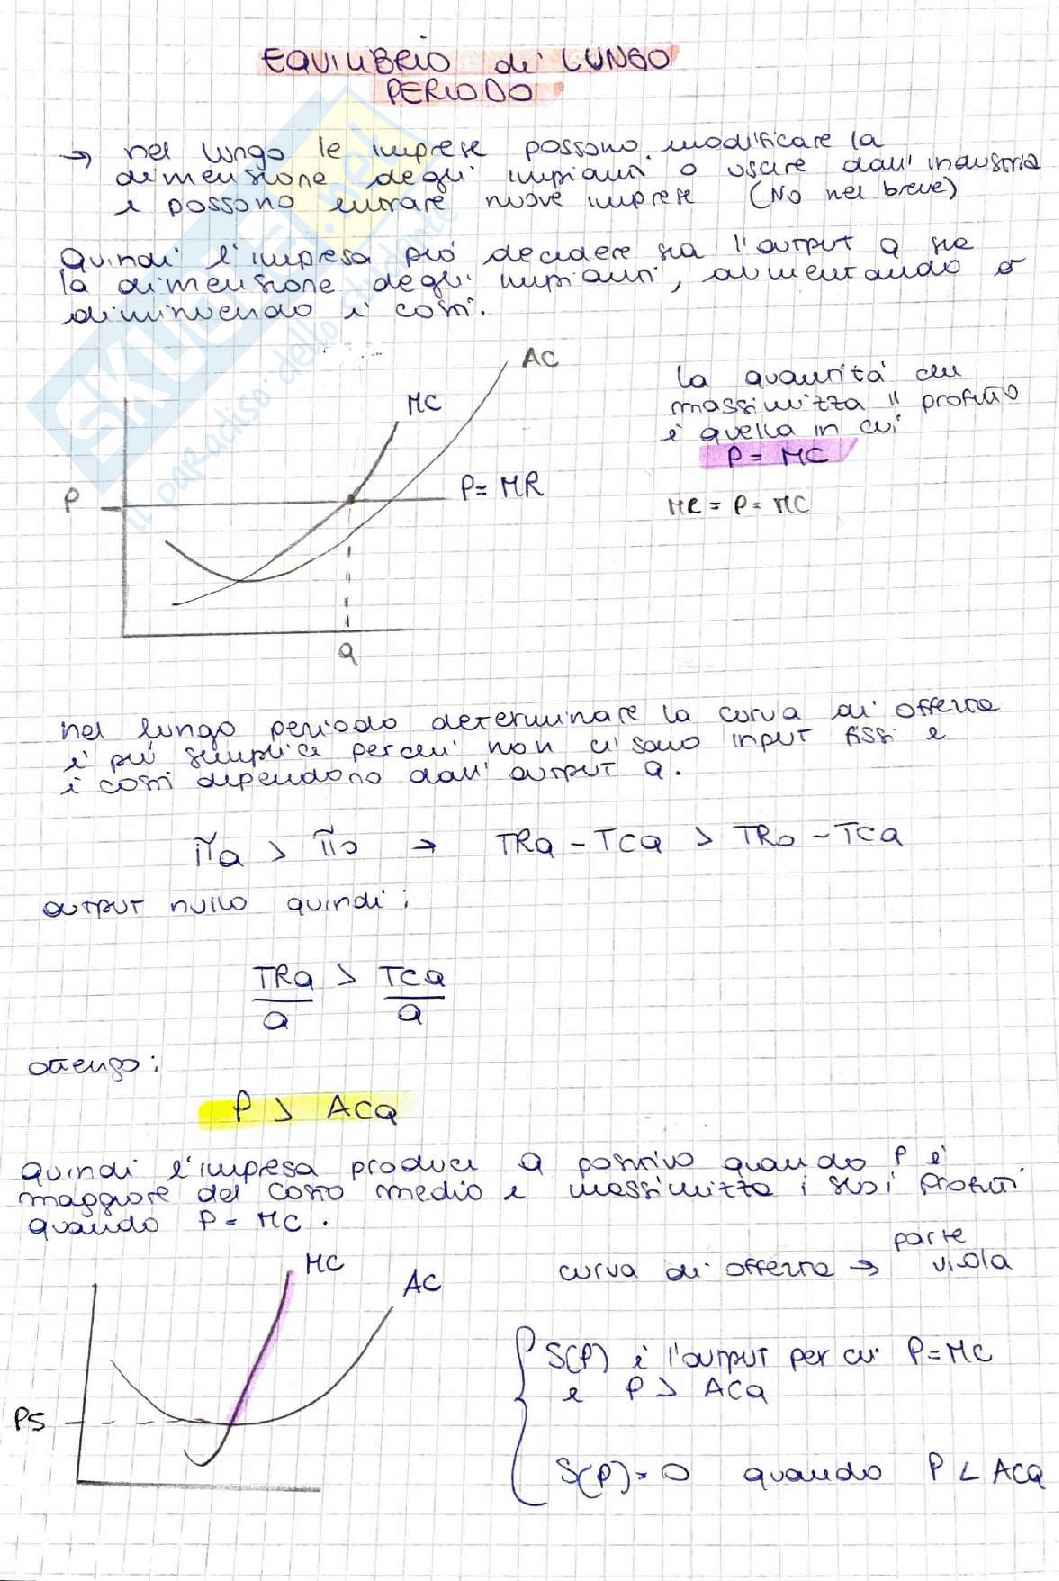 EQUILIBRIO di LUNGO
PERIODO
→ nel lungo le imprese possono modificare la
dimensione degli impianti o uscire dall'industria
e possono entrare nuove imprese (No nel breve)
Quindi l'impresa può decidere sia l'output Q sia
la dimensione degli impianti, aumentando o
diminuendo i costi.
AC
MC
P
P = MR
Q
la quantità che
massimizza il profitto
è quella in cui
P = MC
MR = P = MC
nel lungo periodo determinare la curva di offerta
è più semplice perché non ci sono input fissi e
i costi dipendono dall'output Q.
πQ > π0 → TRQ - TCQ > TR0 - TCQ
output nullo quindi:
TRQ > TCQ
Q Q
ottengo:
P > ACQ
quindi l'impresa produce Q positivo quando P è
maggiore del costo medio e massimizza i suoi profitti
quando P = MC.
MC
AC
PS
curva di offerta → parte
viola
S(P) è l'output per cui P = MC
e P > ACQ
S(P) = 0 quando P < ACQ
SKUOLA.net
il paradiso dello studente